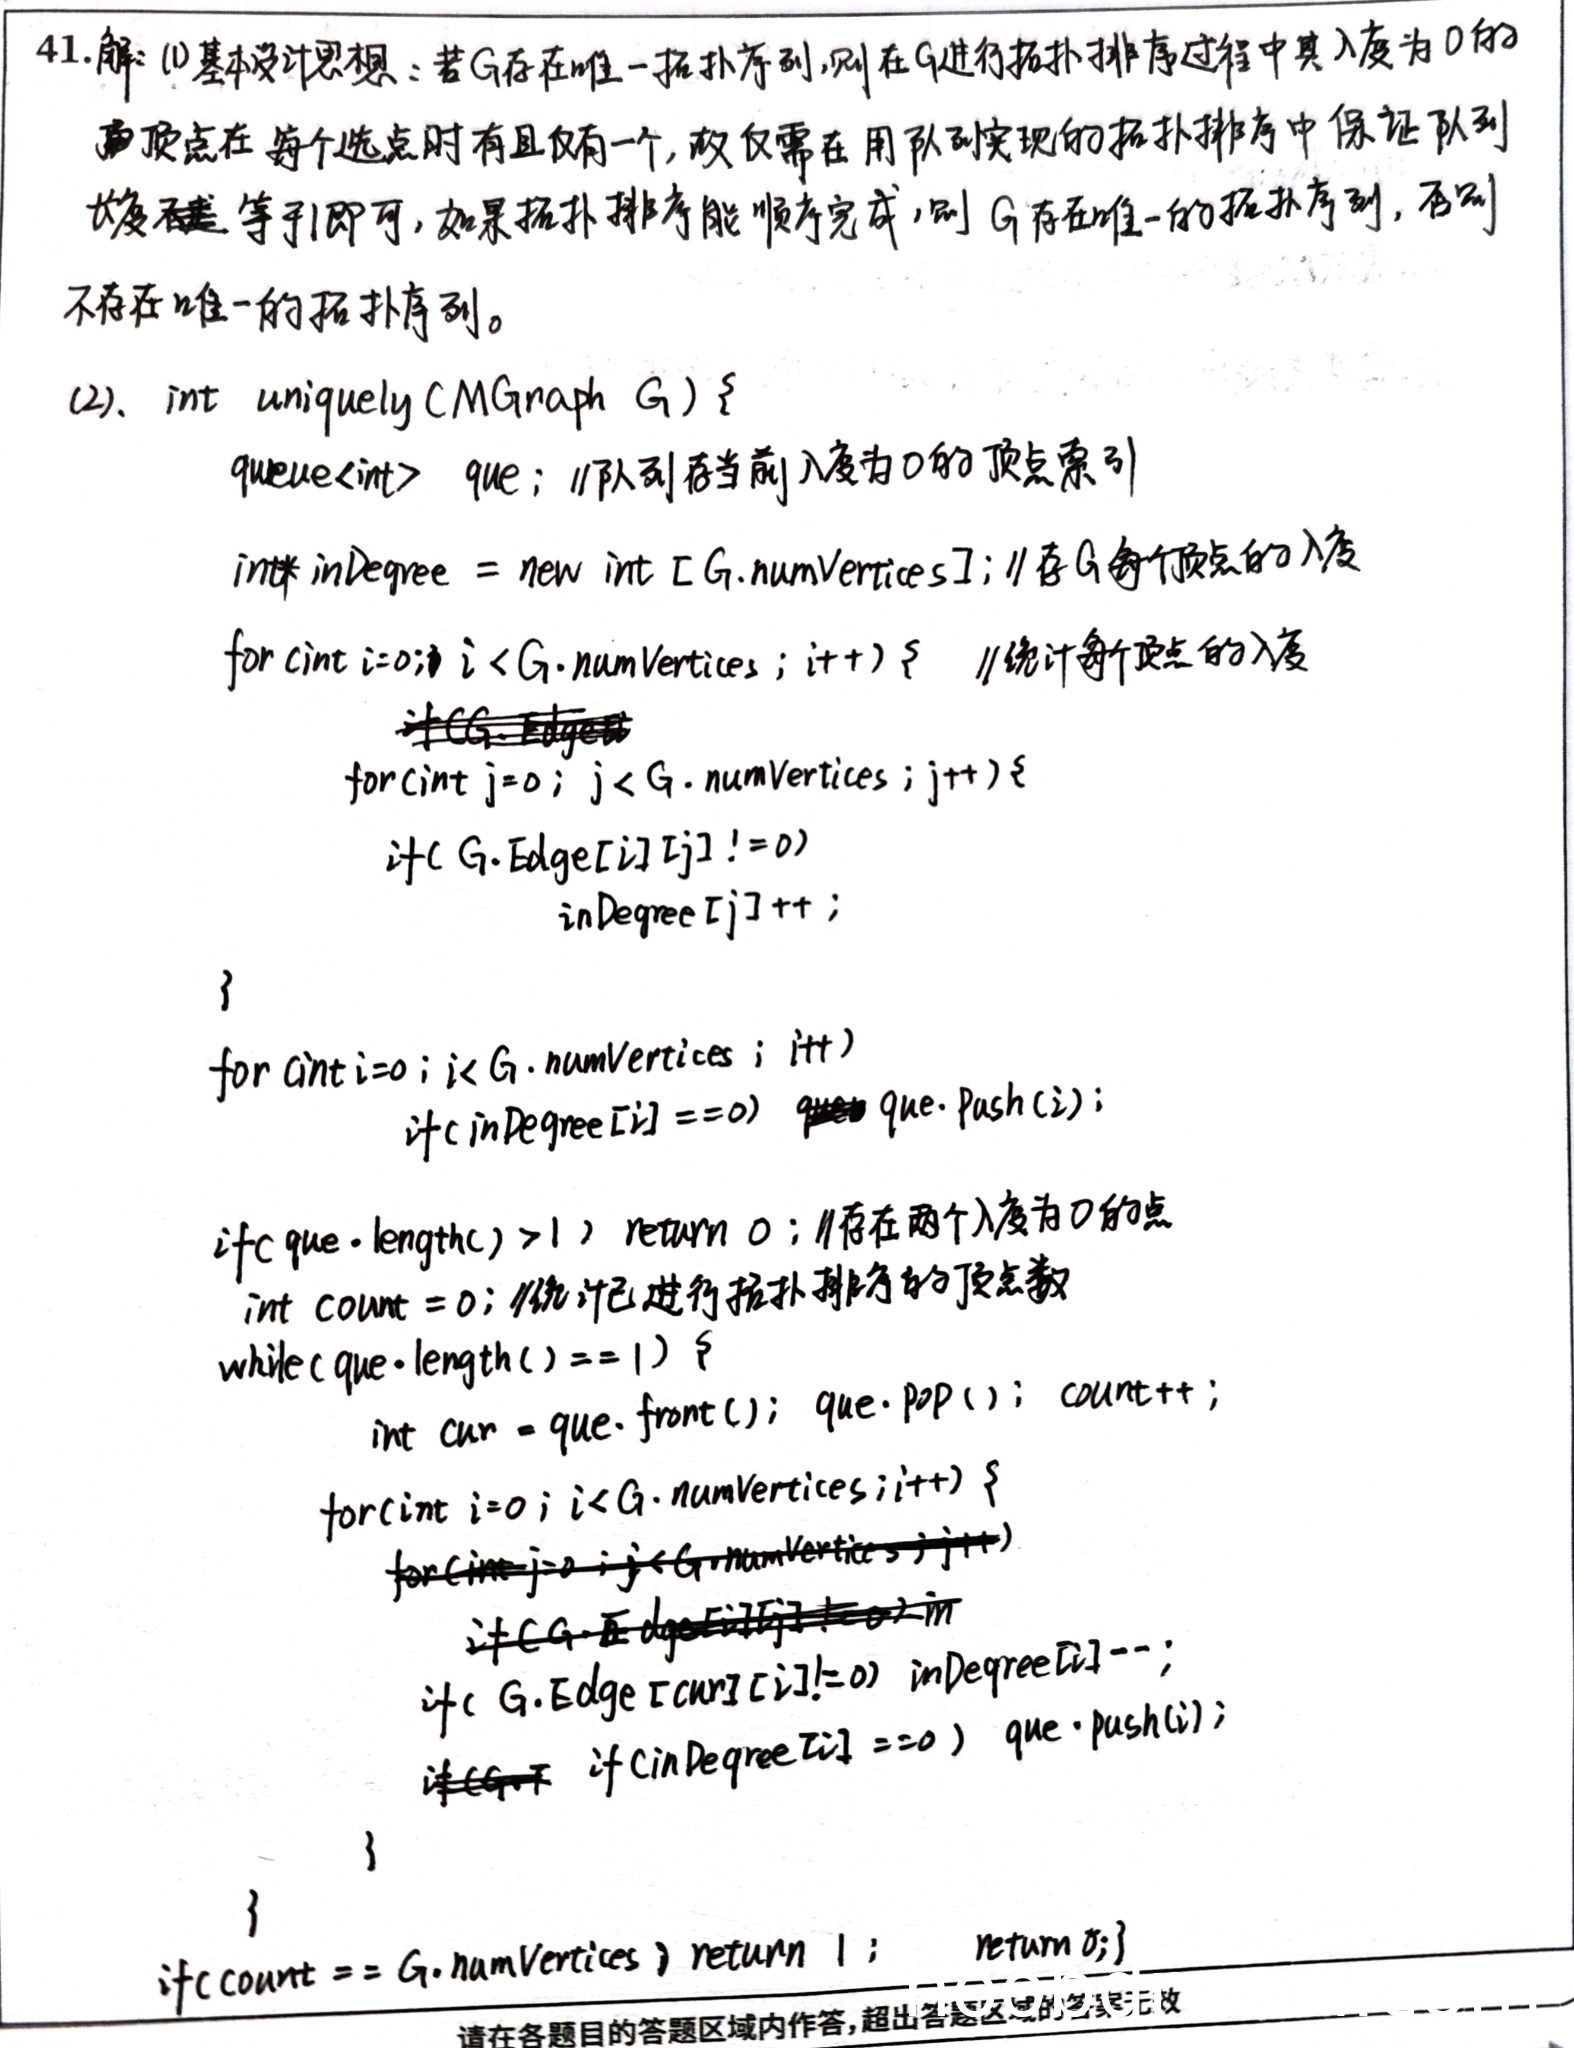 41.解:(1)基本设计思想:若G存在唯一拓扑序列,则在G进行拓扑排序过程中其入度为0的
顶点在每个选点时有且仅有一个,故仅需在用队列实现的拓扑排序中保证队列
长度 等于1即可,如果拓扑排序能顺序完成,则G存在唯一的拓扑序列,否则
不存在唯一的拓扑序列。
(2)、int uniquely(MGraph G){
queue<int> que; //队列存当前入度为0的顶点索引
int* inDegree = new int [G.numVertices]; //存G每个顶点的入度
for(int i=0; i<G.numVertices; i++){ //统计每个顶点的入度
if(G.Edge
for(int j=0; j<G.numVertices; j++){
if(G.Edge[i][j]!=0)
inDegree[j]++;
}
for(int i=0; i<G.numVertices; i++)
if(inDegree[i]==0) que que.push(i);
if(que.length()>1) return 0; //存在两个入度为0的点
int count=0; //统计已进行拓扑排序的顶点数
while(que.length()==1){
int cur = que.front(); que.pop(); count++;
for(int i=0; i<G.numVertices; i++){
for(int j=0; j<G.numVertices; j++)
if(G.Edge[i][j]!=0) in
if(G.Edge[cur][i]!=0) inDegree[i]--;
if(G.E if(inDegree[i]==0) que.push(i);
}
}
if(count==G.numVertices) return 1; return 0;}
请在各题目的答题区域内作答,超出答题区域的答案无效